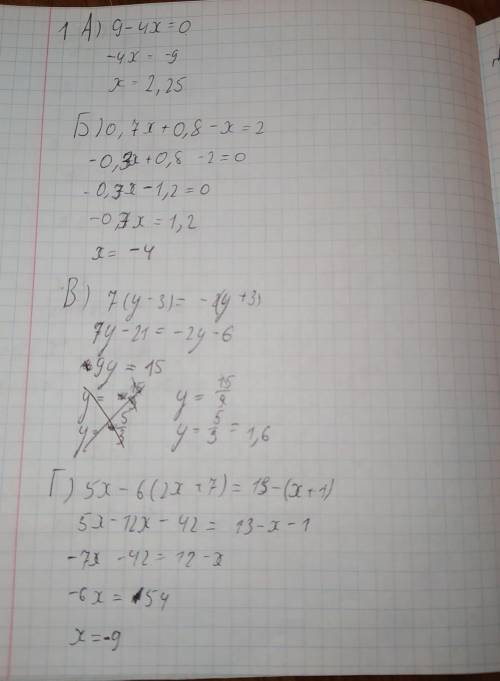 1 А) 9-4x=0
-4x = -9
x = 2,25
Б) 0,7x+0,8-x=2
-0,3x+0,8-2=0
-0,3x-1,2=0
-0,3x=1,2
x= -4
В) 7(y-3)= -2(y+3)
7y-21=-2y-6
9y=15
y= 15/9
y= 5/3 = 1,6
Г) 5x-6(2x+7)=13-(x+1)
5x-12x-42= 13-x-1
-7x -42=12-x
-6x = 54
x=-9